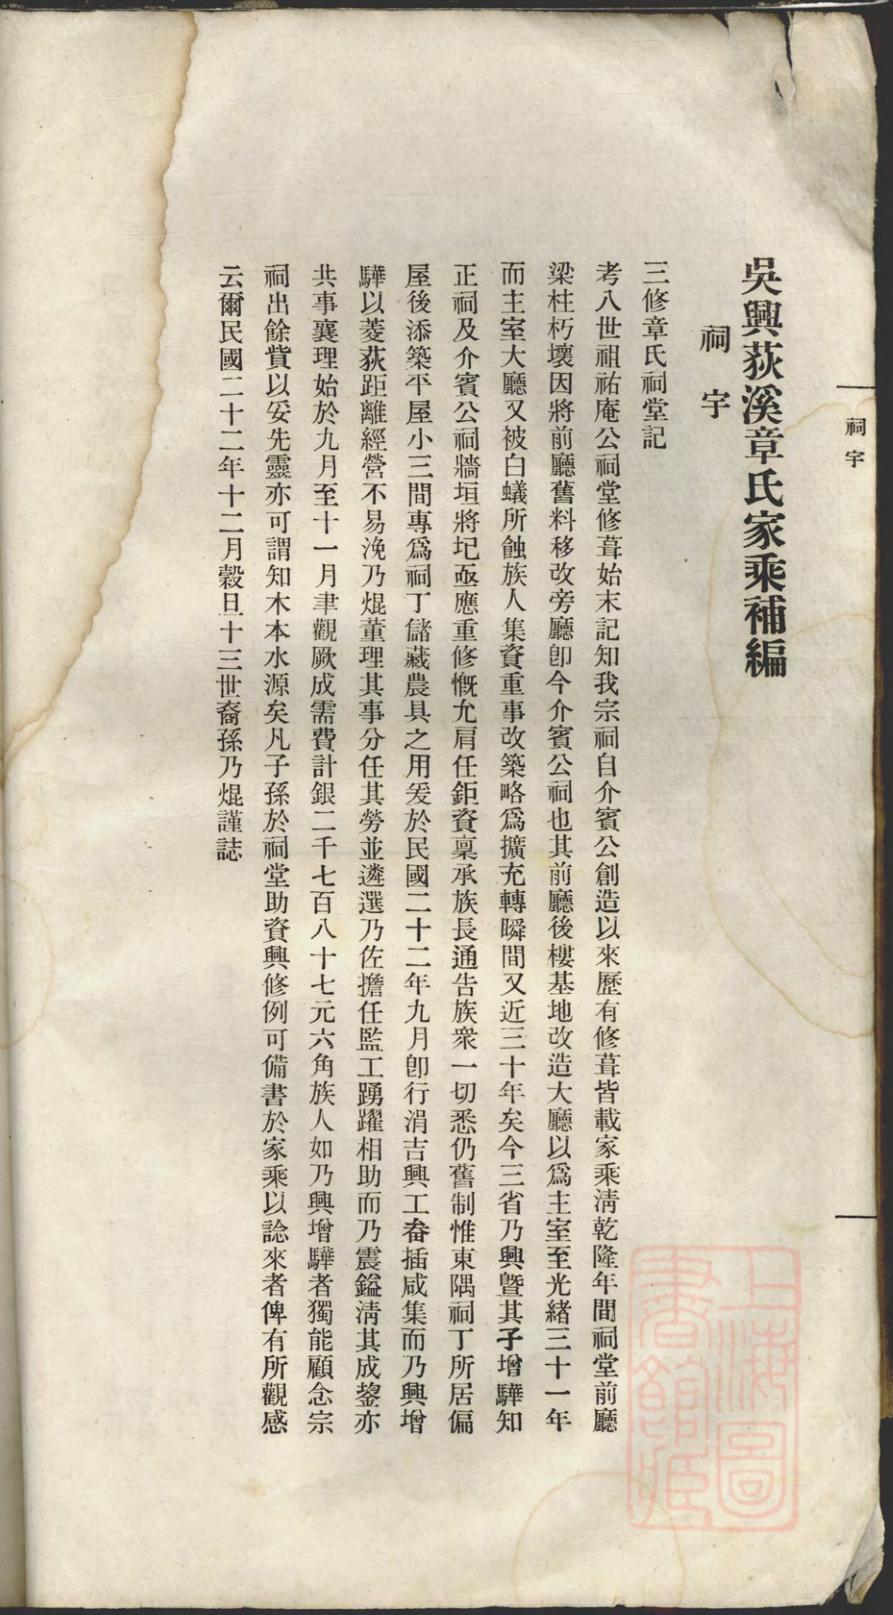 祠宇
吳興荻溪章氏家乘補編
祠宇
三修章氏祠堂記
考八世祖祐庵公祠堂修葺始末記知我宗祠自介賓公創造以來歷有修葺皆載家乘淸乾隆年間祠堂前廳
梁柱朽壞因將前廳舊料移改旁廳卽今介賓公祠也其前廳後樓基地改造大廳以爲主室至光緒三十一年
而主室大廳又被白蟻所蝕族人集資重事改築略爲擴充轉瞬間又近三十年矣今三省乃興曁其子增驊知
正祠及介賓公祠牆垣將圮亟應重修慨允肩任鉅資稟承族長通告族衆一切悉仍舊制惟東隅祠丁所居偏
屋後添築平屋小三間專爲祠丁儲藏農具之用爰於民國二十二年九月卽行涓吉興工畚插咸集而乃興增
驊以菱荻距離經營不易浼乃焜董理其事分任其勞並遴選乃佐擔任監工踴躍相助而乃震鎰淸其成鋆亦
共事襄理始於九月至十一月聿觀厥成需費計銀二千七百八十七元六角族人如乃興增驊者獨能顧念宗
祠出餘貲以妥先靈亦可謂知木本水源矣凡子孫於祠堂助資興修例可備書於家乘以諗來者俾有所觀感
云爾民國二十二年十二月穀旦十三世裔孫乃焜謹誌
上海圖書館藏